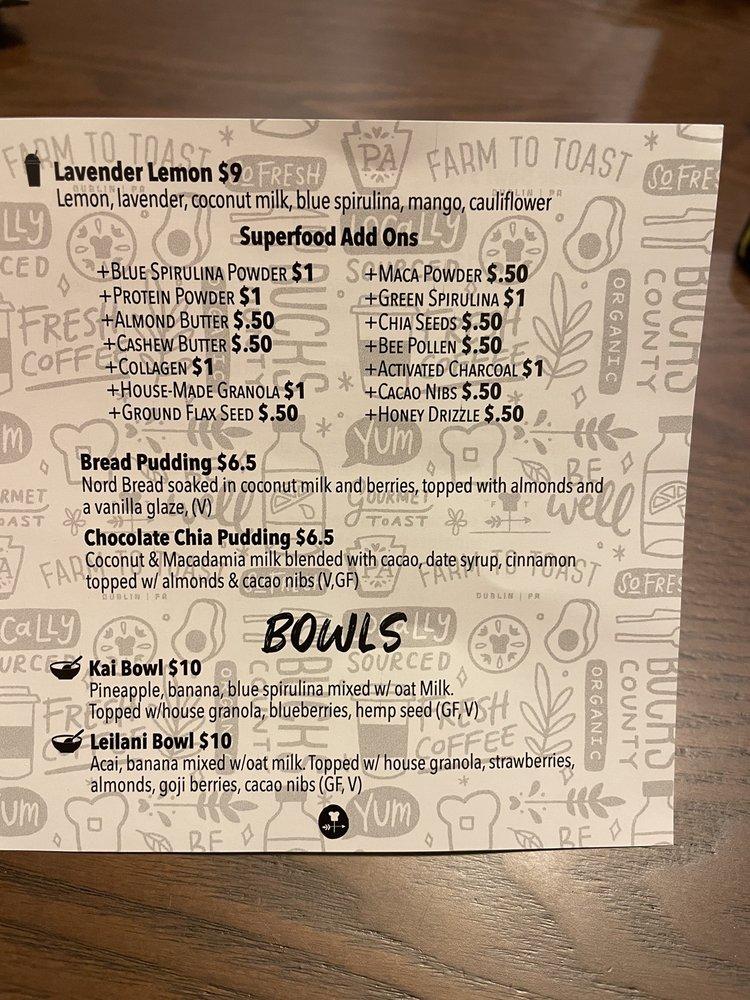 Lavender Lemon $9
Lemon, lavender, coconut milk, blue spirulina, mango, cauliflower
Superfood Add Ons
+Blue Spirulina Powder $1
+Protein Powder $1
+Almond Butter $.50
+Cashew Butter $.50
+Collagen $1
+House-Made Granola $1
+Ground Flax Seed $.50
+Maca Powder $.50
+Green Spirulina $1
+Chia Seeds $.50
+Bee Pollen $.50
+Activated Charcoal $1
+Cacao Nibs $.50
+Honey Drizzle $.50
Bread Pudding $6.5
Nord Bread soaked in coconut milk and berries, topped with almonds and
a vanilla glaze, (V)
Chocolate Chia Pudding $6.5
Coconut & Macadamia milk blended with cacao, date syrup, cinnamon
topped w/ almonds & cacao nibs (V,GF)
BOWLS
Kai Bowl $10
Pineapple, banana, blue spirulina mixed w/ oat Milk.
Topped w/house granola, blueberries, hemp seed (GF, V)
Leilani Bowl $10
Acai, banana mixed w/oat milk. Topped w/ house granola, strawberries,
almonds, goji berries, cacao nibs (GF, V)
FARM TO TOAST
DUBLIN | PA
SO FRESH
PA
FARM TO TOAST
DUBLIN | PA
SO FRES
LOCALLY
ORGANIC
BUCKS
COUNTY
FRESH
COFFEE
YUM
BE
well
GOURMET
TOAST
FARM TO TOAST
DUBLIN | PA
SO FRES
LOCALLY
SOURCED
FRESH
COFFEE
ORGANIC
BUCKS
COUNTY
YUM
BE